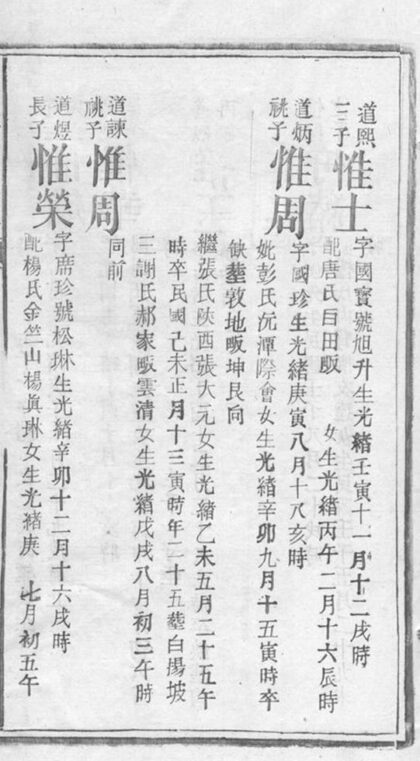 道熙
三子
惟士
字國寶號旭升生光緒壬寅十一月十二戌時
配唐氏目田畈 女生光緒丙午二月十六辰時
道炳
祧子
惟周
字國珍生光緒庚寅八月十八亥時
妣彭氏沅潭際會女生光緒辛卯九月十五寅時卒
缺塟敦地畈坤艮向
繼張氏陝西張大元女生光緒乙未五月二十五午
時卒民國己未正月十三寅時年二十五塟白揚坡
三謝氏郝家畈雲清女生光緒戊戌八月初三午時
道諫
祧子
惟周
同前
道煜
長子
惟榮
字席珍號松琳生光緒辛卯十二月十六戌時
配楊氏金竺山楊眞琳女生光緒庚 七月初五午